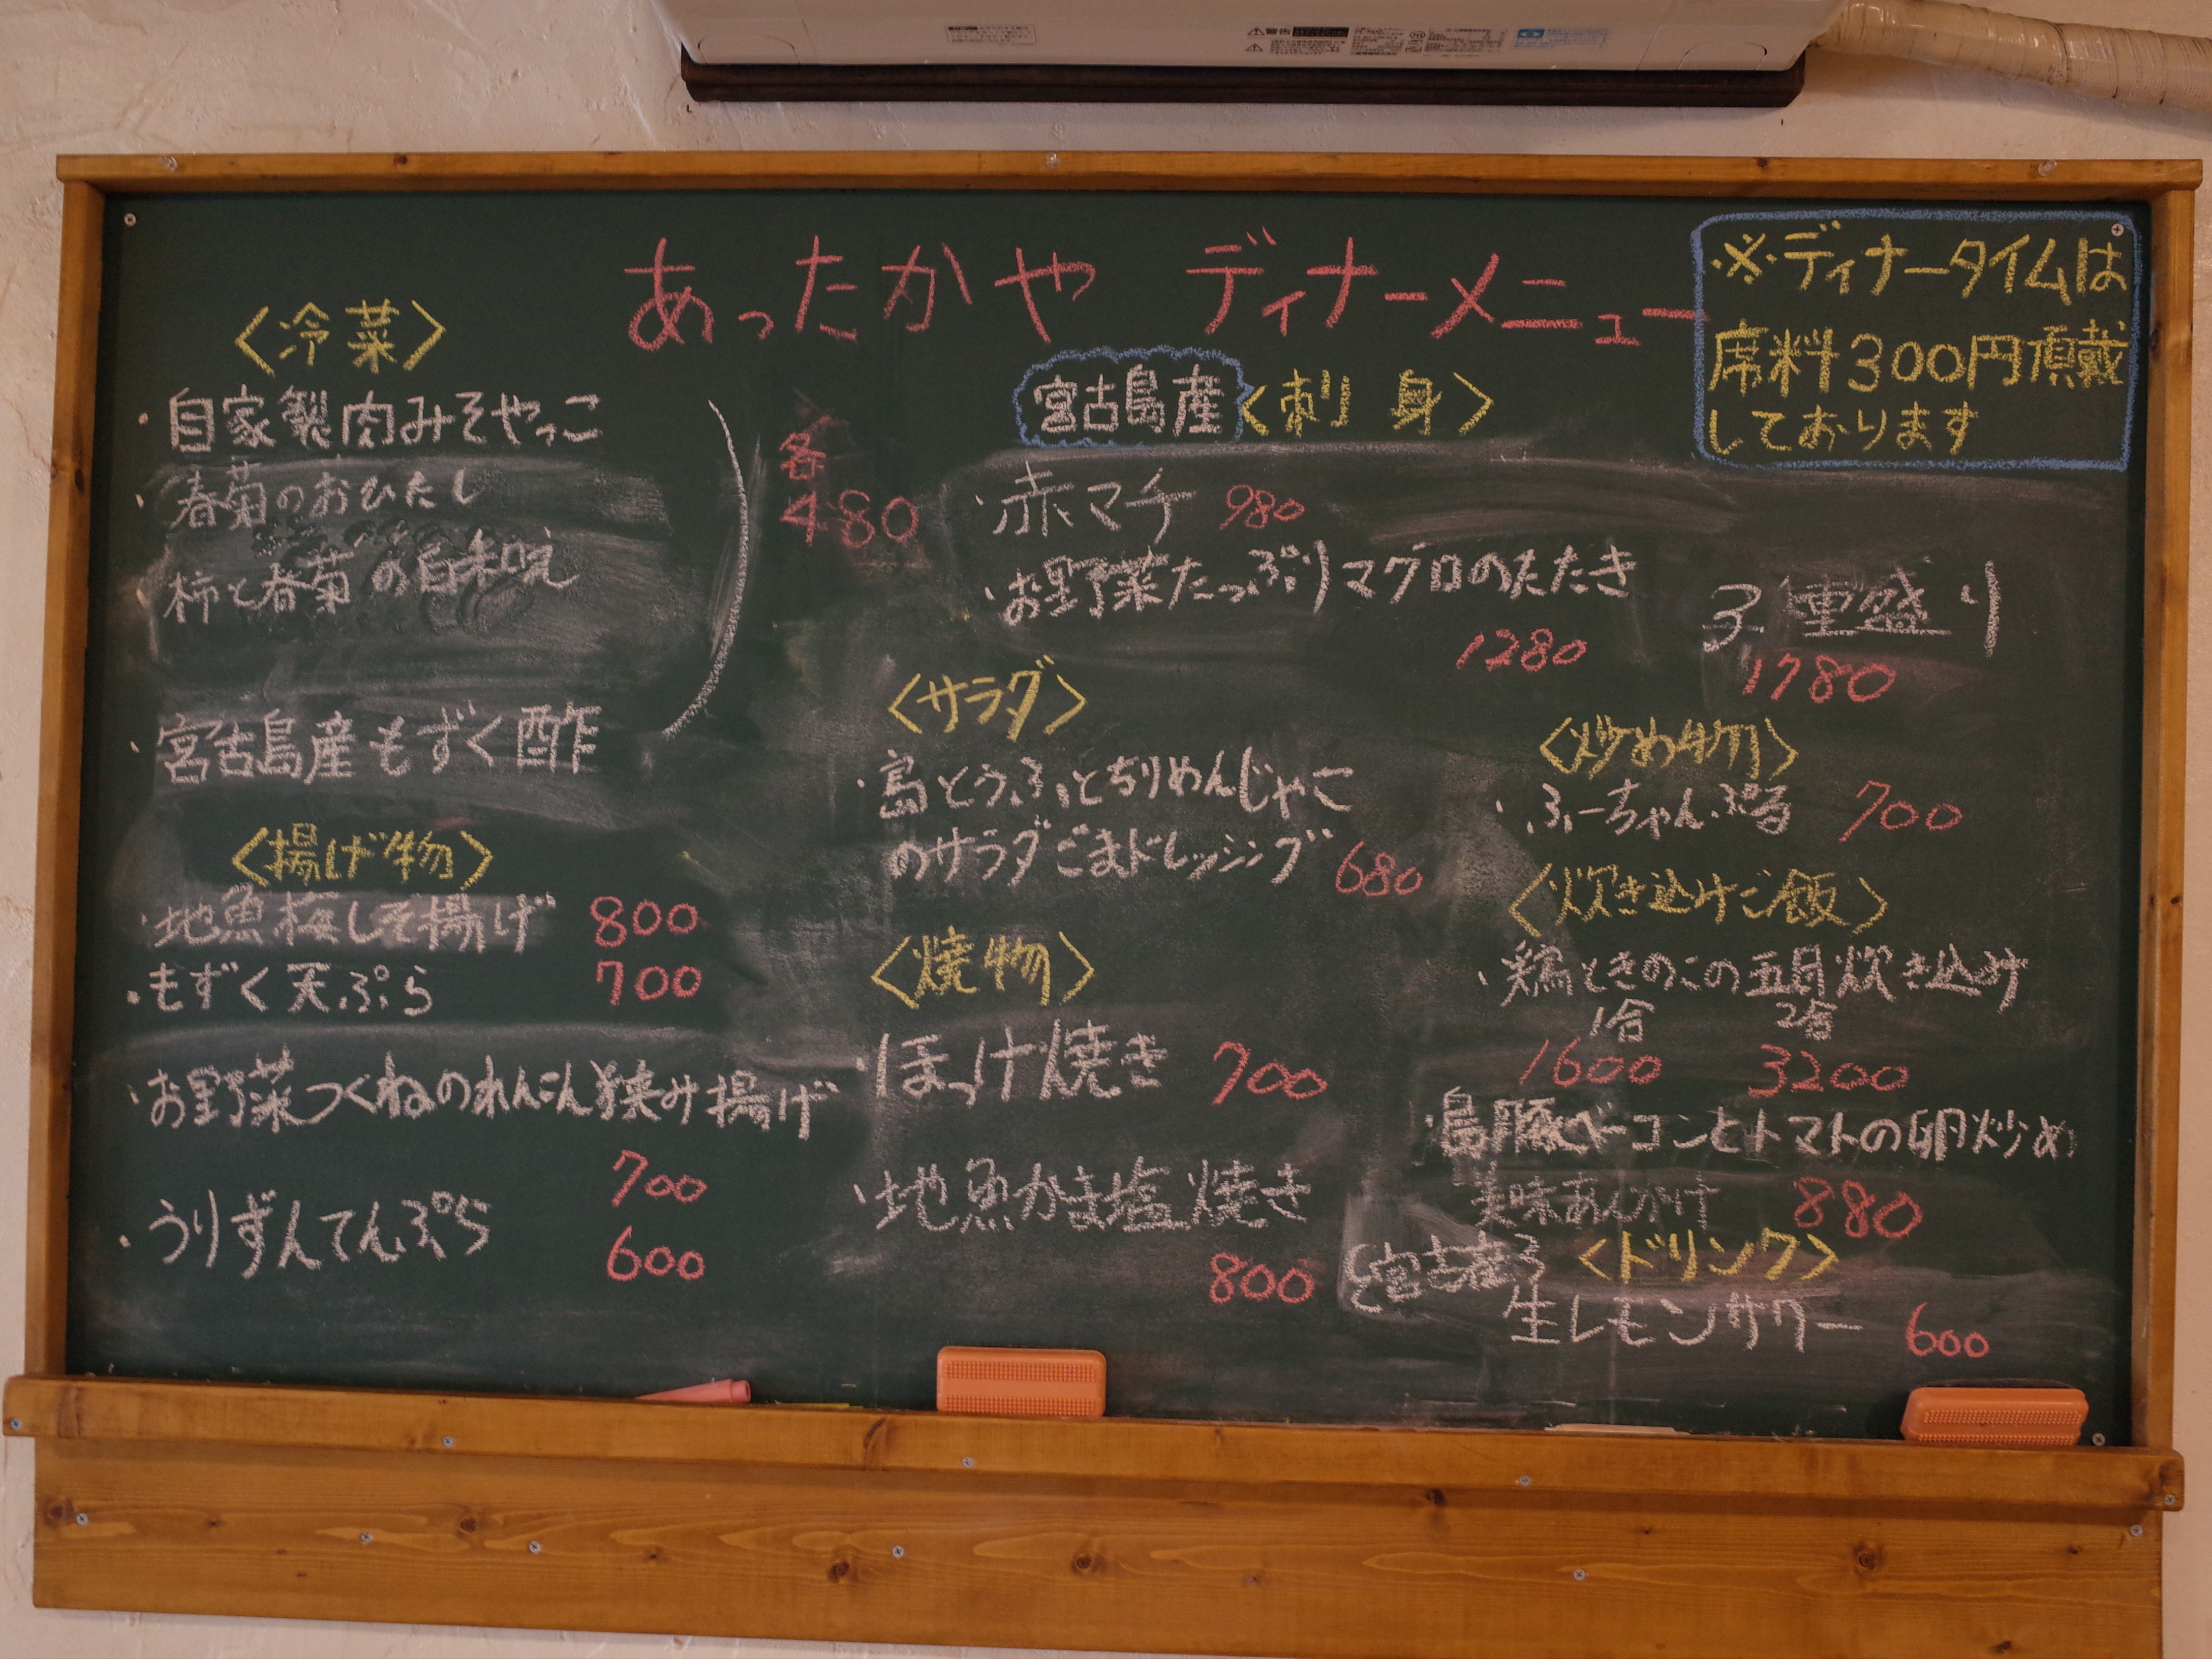 あったかや ディナーメニュー
※ディナータイムは
席料300円頂戴
しております
〈冷菜〉
・自家製肉みそやっこ
・春菊のおひたし
・柿と春菊の白和え
・宮古島産もずく酢
各
480
〈揚げ物〉
・地魚梅しそ揚げ 800
・もずく天ぷら 700
・お野菜つくねのれんこん挟み揚げ
700
・うりずんてんぷら 600
宮古島産〈刺身〉
・赤マチ 980
・お野菜たっぷりマグロのたたき
1280
3種盛り
1780
〈サラダ〉
・島とうふとちりめんじゃこ
のサラダごまドレッシング 680
〈焼物〉
・ほっけ焼き 700
・地魚かま塩焼き
800
〈炒め物〉
・ふーちゃんぷる 700
〈炊き込みご飯〉
・鶏ときのこの五目炊き込み
1合 2合
1600 3200
・島豚ベーコンとトマトの卵炒め
美味あんかけ 880
〈ドリンク〉
宮古産
生レモンサワー 600
警告